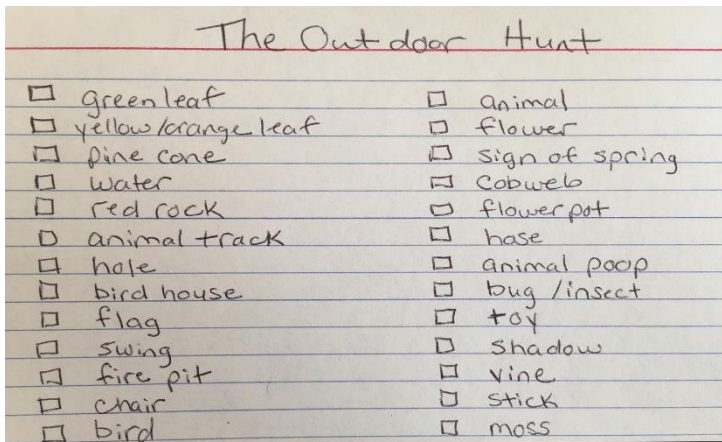 The Outdoor Hunt
green leaf
yellow/orange leaf
pine cone
water
red rock
animal track
hole
bird house
flag
swing
fire pit
chair
bird
animal
flower
sign of spring
cobweb
flower pot
hose
animal poop
bug/insect
toy
shadow
vine
stick
moss